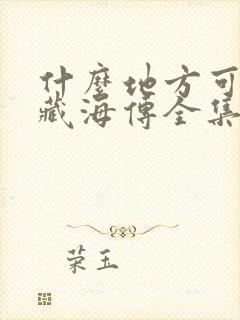 什麼地方可
藏海傳全集
荣玉